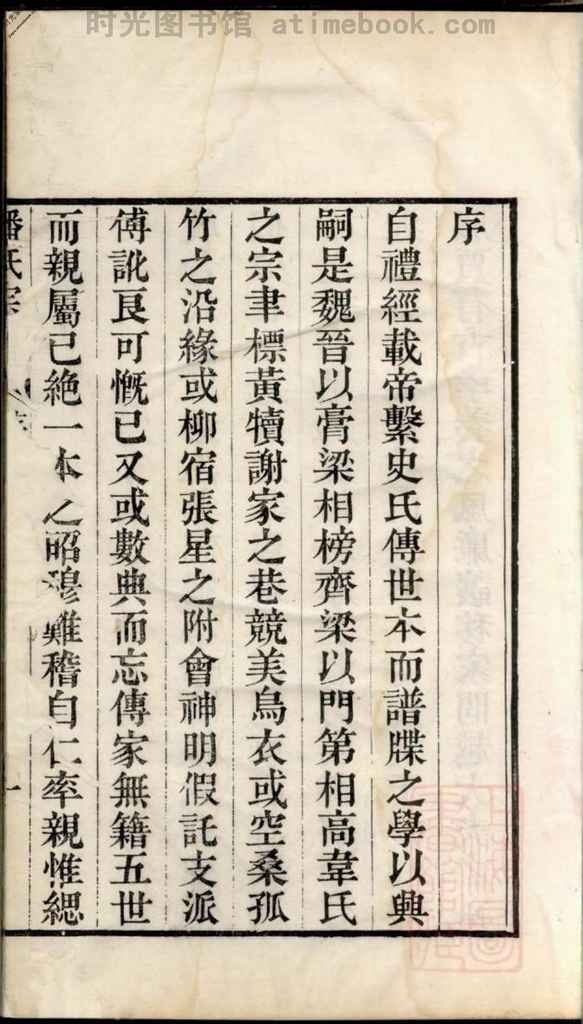 时光图书馆 atimebook.com
序
自禮經載帝繫史氏傳世本而譜牒之學以興
嗣是魏晉以膏梁相榜齊梁以門第相高韋氏
之宗聿標黃犢謝家之巷競美烏衣或空桑孤
竹之沿緣或柳宿張星之附會神明假託支派
傅訛良可慨已又或數典而忘傳家無籍五世
而親屬已絶一本之昭穆難稽自仁率親惟緦
潘氏宗
一